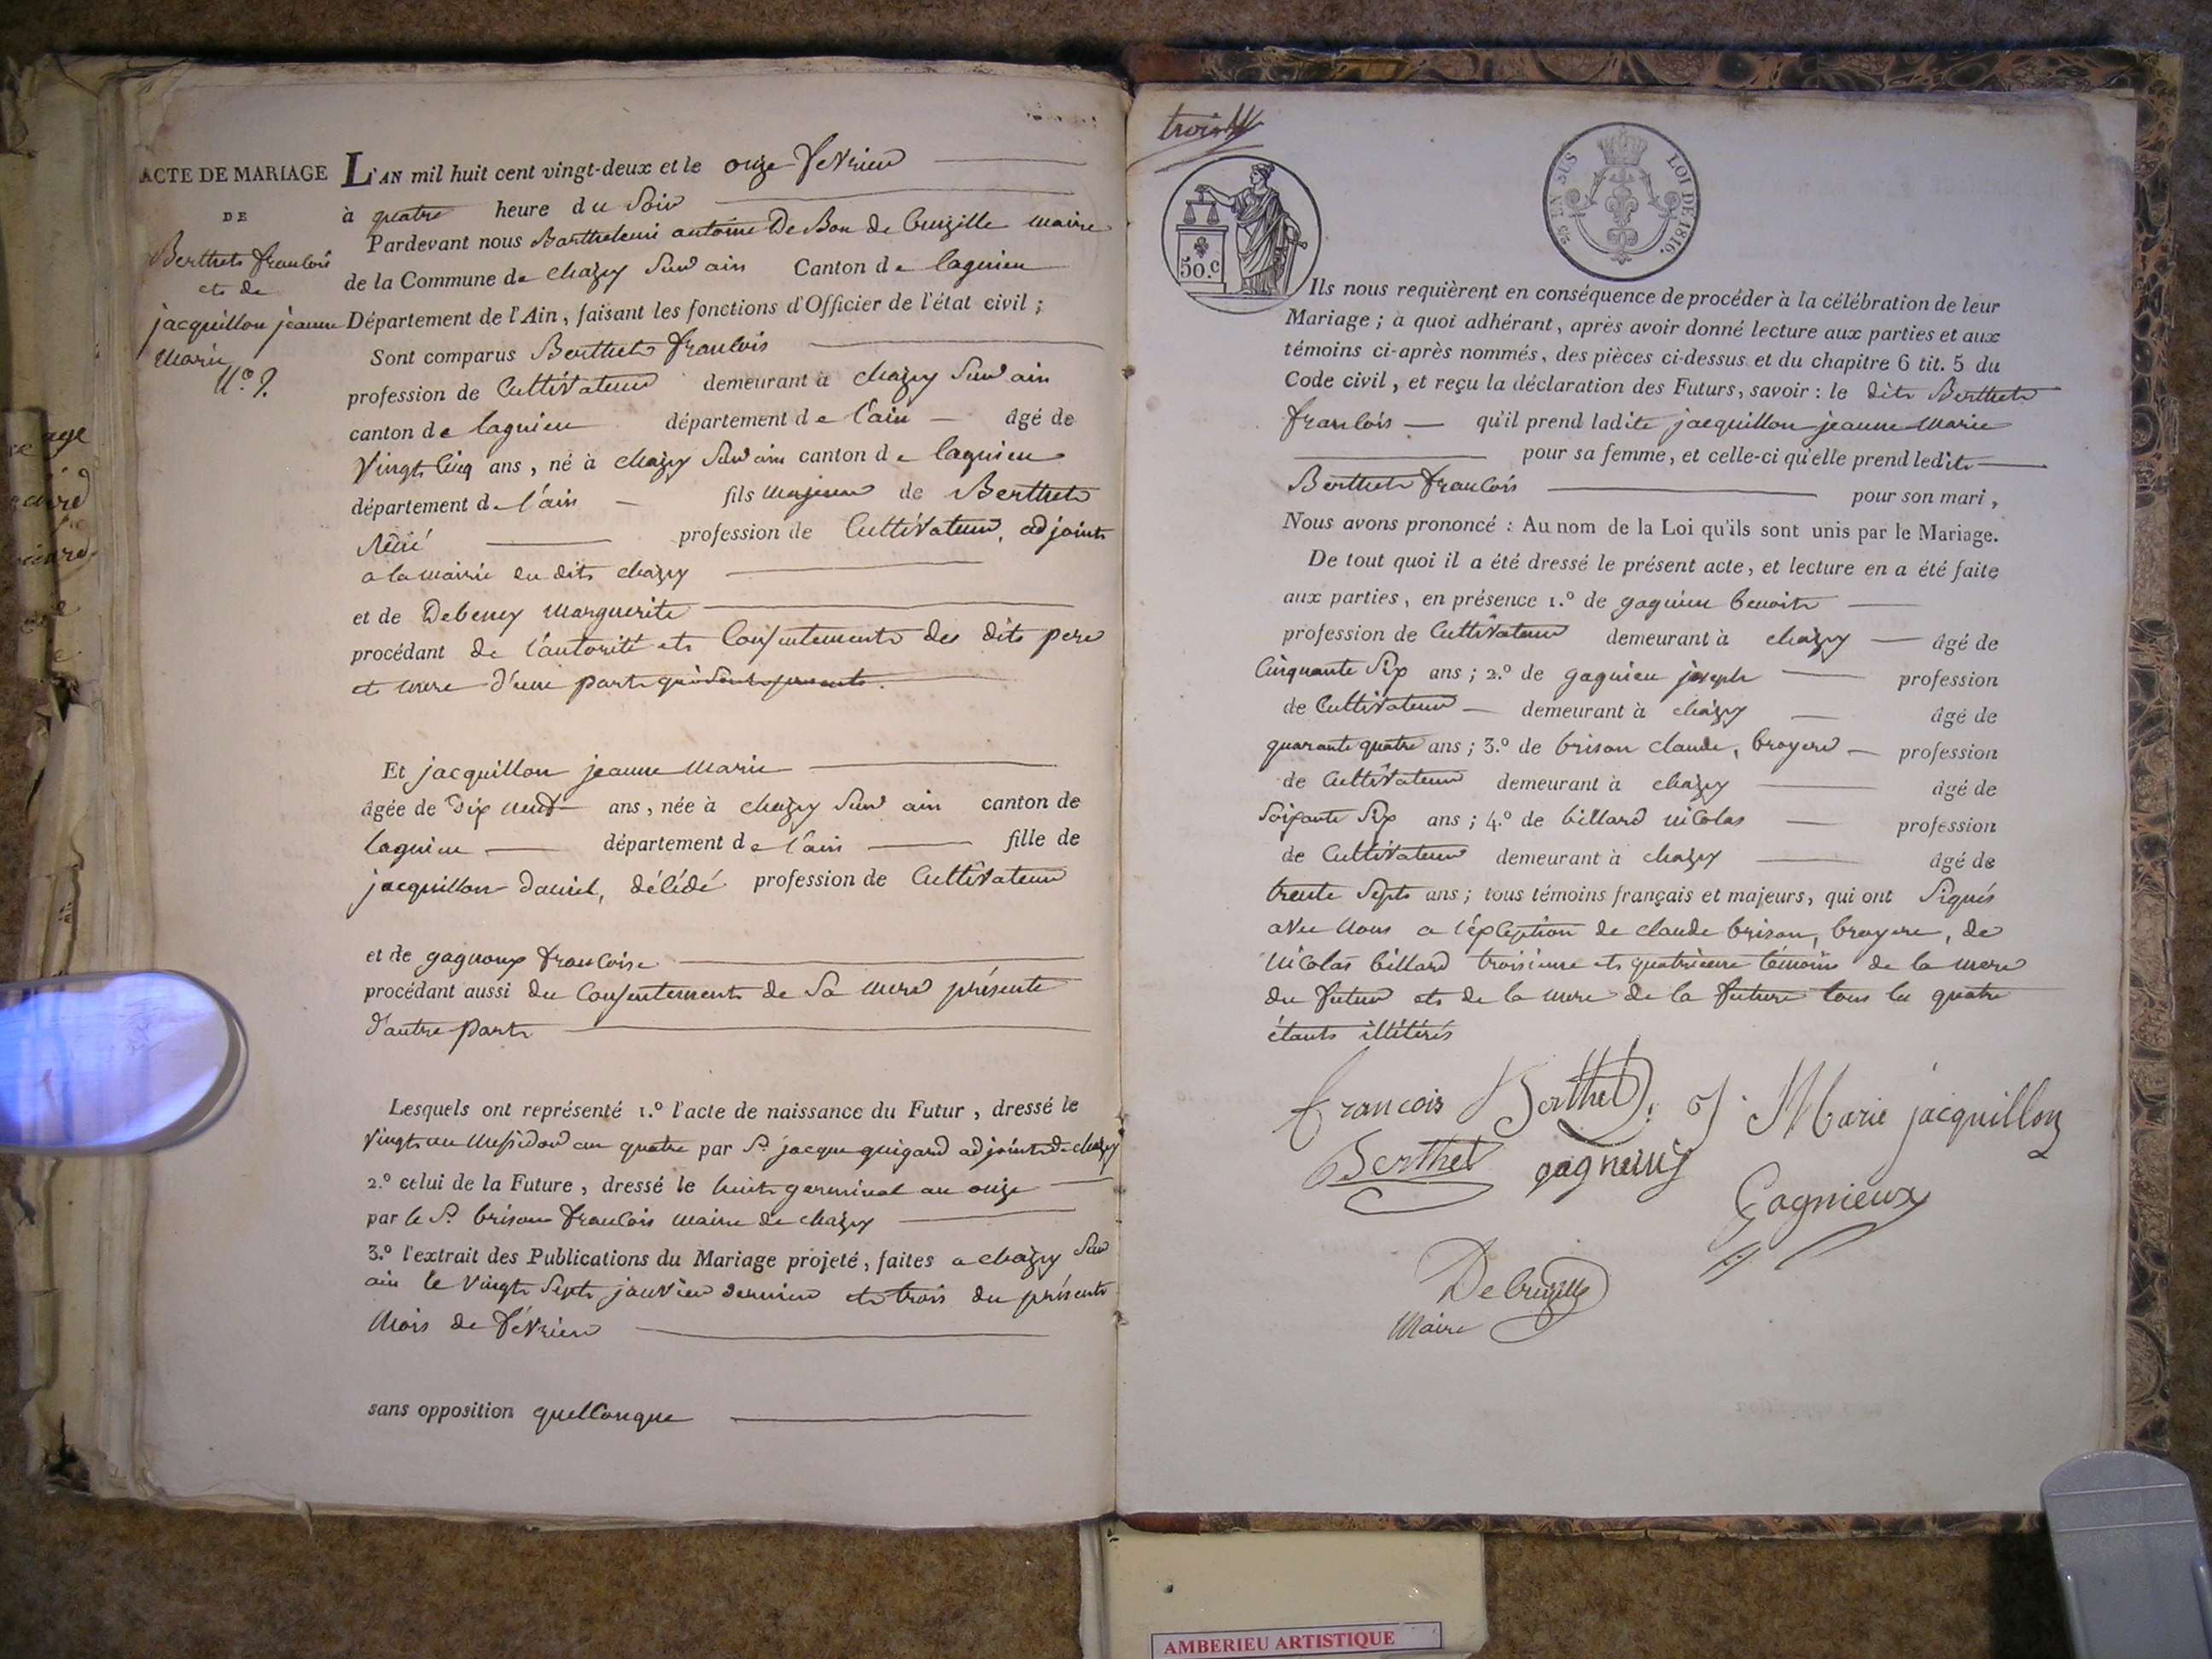 ACTE DE MARIAGE
DE
Berthet françois
et de
jacquillon jeanne
Marie
N.º 9.
L'AN mil huit cent vingt-deux et le onze fevrier
à quatre heure du Soir
Pardevant nous Barthelemi antoine De Bon de Cruzille maire
de la Commune de chazey Sur ain Canton de lagnieu
Département de l'Ain, faisant les fonctions d'Officier de l'état civil ;
Sont comparus Berthet françois
profession de Cultivateur demeurant à chazey Sur ain
canton de lagnieu département de l'ain âgé de
Vingt Cinq ans, né à chazey Sur ain canton de lagnieu
département de l'ain fils Majeur de Berthet
René profession de Cultivateur, adjoint
a la mairie du dit chazey
et de Debeney Marguerite
procédant de l'autorité et Consentement des dits pere
et mere d'une part qui Sont presents.
Et jacquillon jeanne Marie
âgée de Dix neuf ans, née à chazey Sur ain canton de
lagnieu département de l'ain fille de
jacquillon Daniel, décédé profession de Cultivateur
et de gagnoux françoise
procédant aussi du Consentement de Sa mere présente
d'autre part
Lesquels ont représenté 1.º l'acte de naissance du Futur, dressé le
Vingt un Messidor an quatre par Sr. jacque guigard adjoint de chazey
2.º celui de la Future, dressé le huit germinal an onze
par le Sr. brison françois maire de chazey
3.º l'extrait des Publications du Mariage projeté, faites a chazey Sur
ain le Vingt Sept janvier dernier et trois du présent
Mois de Février
sans opposition quelconque
trois
50.c
EN SUS
LOI DE 1816.
Ils nous requièrent en conséquence de procéder à la célébration de leur
Mariage ; à quoi adhérant, après avoir donné lecture aux parties et aux
témoins ci-après nommés, des pièces ci-dessus et du chapitre 6 tit. 5 du
Code civil, et reçu la déclaration des Futurs, savoir : le dit Berthet
françois qu'il prend ladite jacquillon jeanne Marie
pour sa femme, et celle-ci qu'elle prend ledit
Berthet françois pour son mari,
Nous avons prononcé : Au nom de la Loi qu'ils sont unis par le Mariage.
De tout quoi il a été dressé le présent acte, et lecture en a été faite
aux parties, en présence 1.º de gagnieu benoit
profession de Cultivateur demeurant à chazey âgé de
Cinquante Six ans ; 2.º de gagnieu joseph profession
de Cultivateur demeurant à chazey âgé de
quarante quatre ans ; 3.º de brison claude, broyere profession
de Cultivateur demeurant à chazey âgé de
Soixante Six ans ; 4.º de billard nicolas profession
de Cultivateur demeurant à chazey âgé de
trente Sept ans ; tous témoins français et majeurs, qui ont Signés
avec Nous a l'exception de claude brison, broyere, de
Nicolas billard troisieme et quatrieme témoins de la mere
du futur et de la mere de la future tous les quatre
étants illitérés
francois Berthet. J. Marie jacquillon
Berthet gagnieux
Gagnieux
DeCruzille
Maire
AMBERIEU ARTISTIQUE